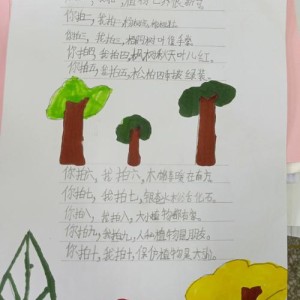 你拍二,我拍二,
你拍三,我拍三,梧桐树叶像手掌
你拍四,我拍四,枫树秋天叶儿红.
你拍五,我拍五,松柏四季披绿装.
你拍六,我拍六,木棉喜暖在南方
你拍七,我拍七,银杏水杉活化石.
你拍八,我拍八,大小植物都有家.
你拍九,我拍九,人和植物是朋友.
你拍十,我拍十,保护植物是大事.